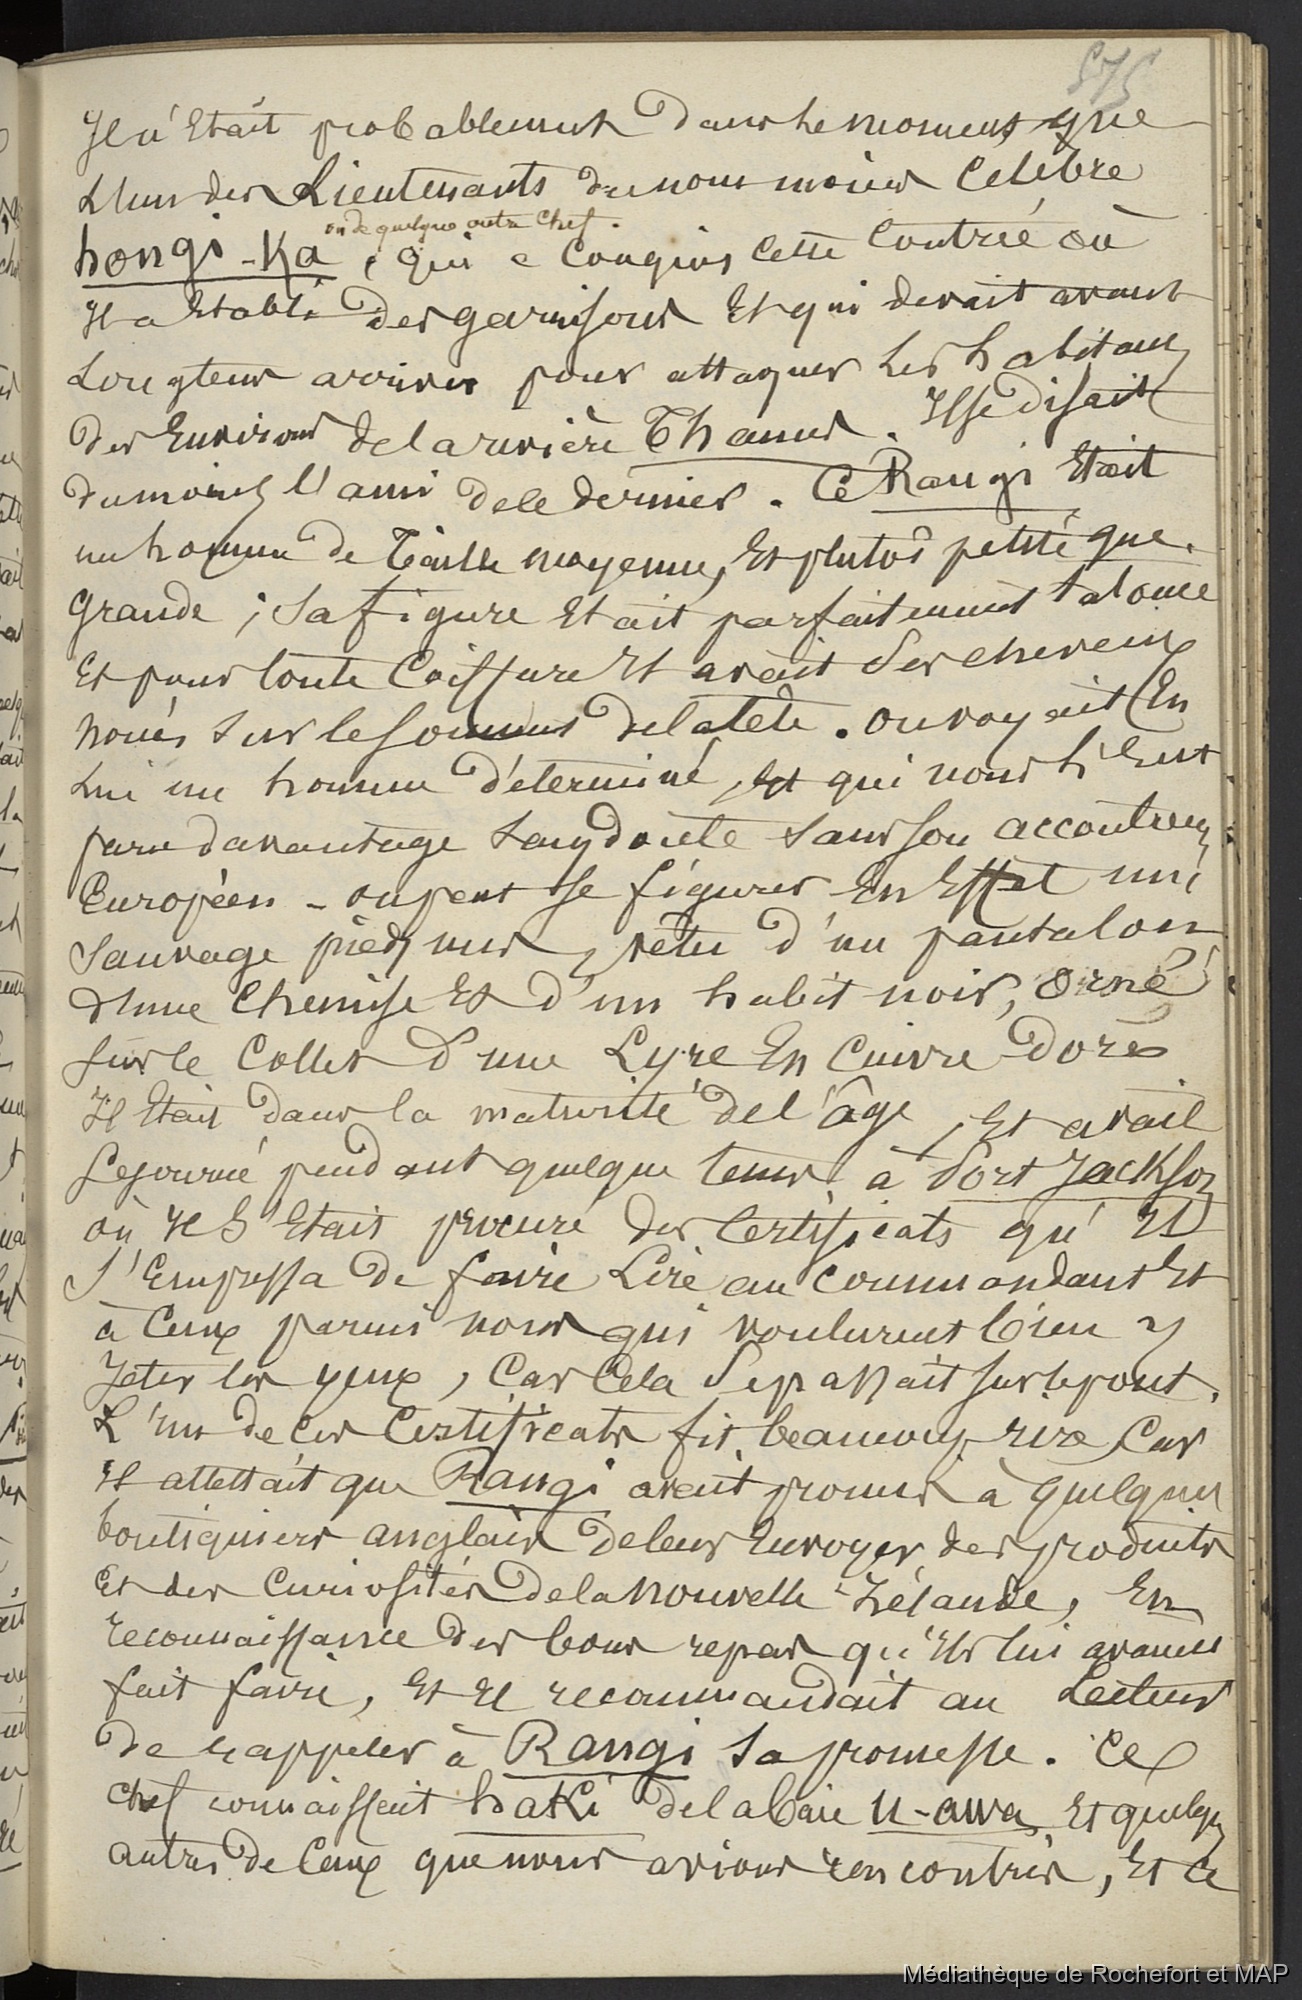 575
Il n'Etait probablement dans ce moment que
L'un des Lieutenants du non moins Celèbre
ou de quelque autre Chef.
hongi-Ka, qui a Conquis Cette Contrée où
Il a Etabli des garnisons Et qui devait avant
Longtems arriver pour attaquer Les habitans
des Environs de la rivière Thames. Il se disait
du moins L'ami de ce dernier. Ce Rangi Etait
un homme de Taille moyenne, Et plutôt petite que
Grande ; Sa figure Etait parfaitement tatouée
Et pour toute Coiffure Il avait Ses cheveux
noués Sur le Sommet de la tête. on voyait En
Lui un homme déterminé, Et qui nous L'Eut
paru davantage Sans doute Sans Son accoutremt
Européen - on peut Se figurer En Effet un
Sauvage pieds nus, vêtu d'un pantalon
d'une Chemise Et d'un habit noir, orné
Sur le Collet d'une Lyre En Cuivre doré
Il Etait dans la maturité de l'âge, Et avait
Séjourné pendant quelque tems à Port Jackson
où Il S'Etait procuré des Certificats qu'Il
S'Empressa de faire Lire au Commandant Et
à Ceux parmi nous qui voulurent bien y
Jeter les yeux, Car Cela Se passait Sur le pont.
L'un de ces Certificats fit beaucoup rire, Car
Il attestait que Rangi avait promis à quelques
boutiquiers anglais de leur Envoyer des produits
Et des Curiosités de la Nouvelle-Zélande, En
reconnaissance des bons repas qu'Ils lui avaient
fait faire, Et Il recommandait au Lecteur
de rappeler à Rangi Sa promesse. Ce
Chef connaissait haKi de la baie U-awa Et quelques
autres de Ceux que nous avions rencontrés, Et Ce
Médiathèque de Rochefort et MAP